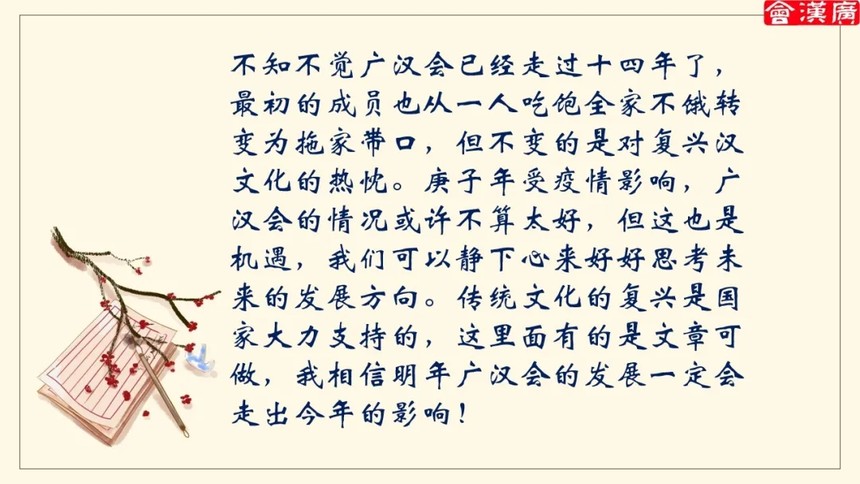 會漢廣
不知不觉广汉会已经走过十四年了，
最初的成员也从一人吃饱全家不饿转
变为拖家带口，但不变的是对复兴汉
文化的热忱。庚子年受疫情影响，广
汉会的情况或许不算太好，但这也是
机遇，我们可以静下心来好好思考未
来的发展方向。传统文化的复兴是国
家大力支持的，这里面有的是文章可
做，我相信明年广汉会的发展一定会
走出今年的影响！